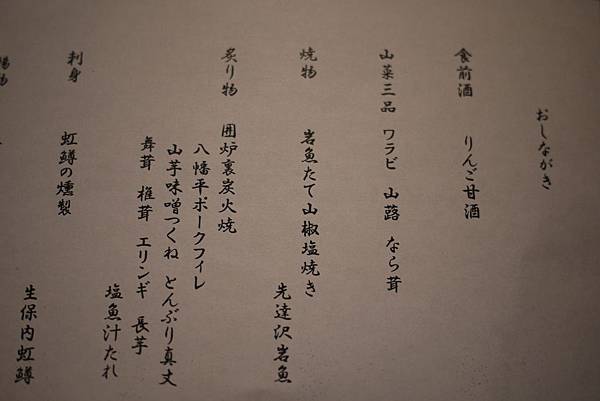 おしながき
食前酒 りんご甘酒
山菜三品 ワラビ 山蕗 なら茸
焼物 岩魚たて山椒塩焼き
先達沢岩魚
炙り物 囲炉裏炭火焼
八幡平ポークフィレ
山芋味噌つくね とんぶり真丈
舞茸 椎茸 エリンギ 長芋
塩魚汁たれ
刺身 虹鱒の燻製
生保内虹鱒